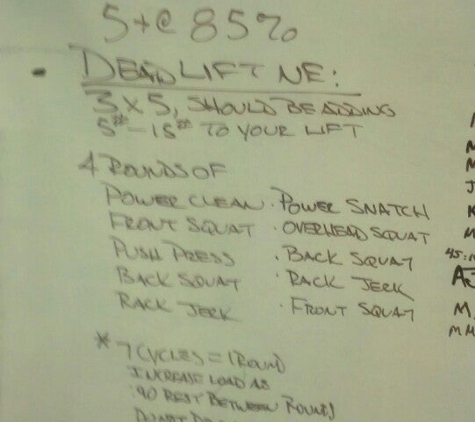 5+@ 85%
- DEADLIFT NE:
3 X 5, SHOULD BE ADDING
5#-15# TO YOUR LIFT
4 ROUNDS OF
POWER CLEAN · POWER SNATCH
FRONT SQUAT · OVERHEAD SQUAT
PUSH PRESS · BACK SQUAT
BACK SQUAT · RACK JERK
RACK JERK · FRONT SQUAT
* 7 CYCLES = 1 ROUND
INCREASE LOAD AS
:90 REST BETWEEN ROUNDS